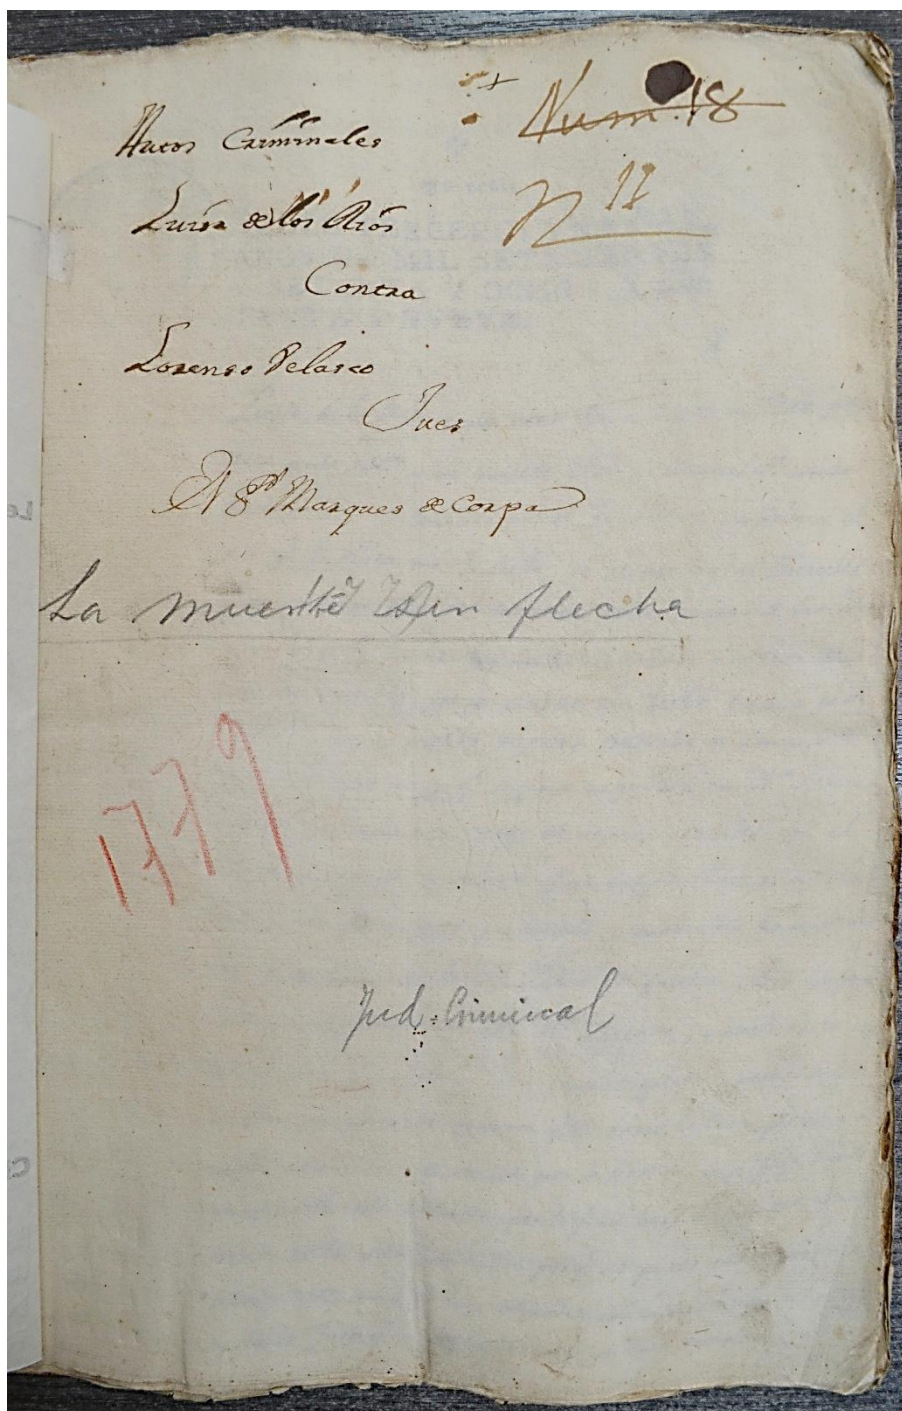 Num 18
Autos Criminales
N 11
Luisa de los Rios
Contra
Lorenso Velasco
Jues
El Sor Marques de Corpa
La muerte sin flecha
1779
Jud. Criminal